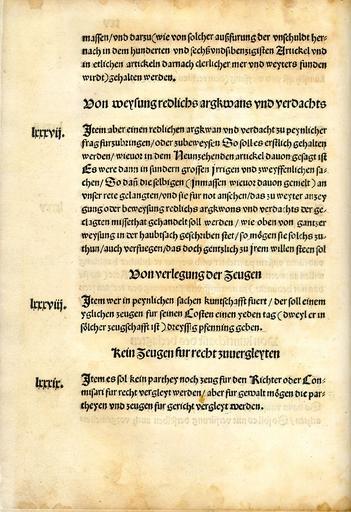 massen/vnd darzu (wie von solcher außfurung der vnschuldt her-
nach in dem hunderten vnd sechßvndsibenzigisten Artickel vnd
in etlichen artickeln darnach clerlicher mer vnd weyters funden
wirdt) gehalten werden.
Von weysung redlichs argkwans vnd verdachts
lxxxvij. Item aber einen redlichen argkwan vnd verdacht zu peynlicher
frag furzubringen/oder zubeweysen So soll es erstlich gehalten
werden/wieuor in dem Neunzehenden artickel dauon gesagt ist
Es were dann in sundern grossen jrrigen vnd zweyffenlichen sa-
chen/So dañ die selbigen (jnmassen wieuor dauon gemelt) an
vnser rete gelangten/vnd sie fur not ansehen/das zu weyter anzey
gung oder beweysung redlichs argkwons vnd verdachts der ge-
clagten missethat gehandelt soll werden/wie oben von gantzer
weysung in der haubtsach geschriben stet/so mögen sie solchs zu-
thun/auch verfuegen/das doch gentzlich zu jrem willen steen sol
Von verlegung der Zeugen
lxxxviij. Item wer in peynlichen sachen kuntschafft fuert/der soll einem
yglichen zeugen fur seinen Costen einen yeden tag (dweyl er in
sölcher zeugschafft ist) dreyssig pfenning geben.
Kein Zeugen fur recht zuuergleyten
lxxxix. Item es sol kein parthey noch zeug fur den Richter oder Com-
misari fur recht vergleyt werden/aber fur gewalt mögen die par-
theyen vnd zeugen fur gericht vergleyt werden.